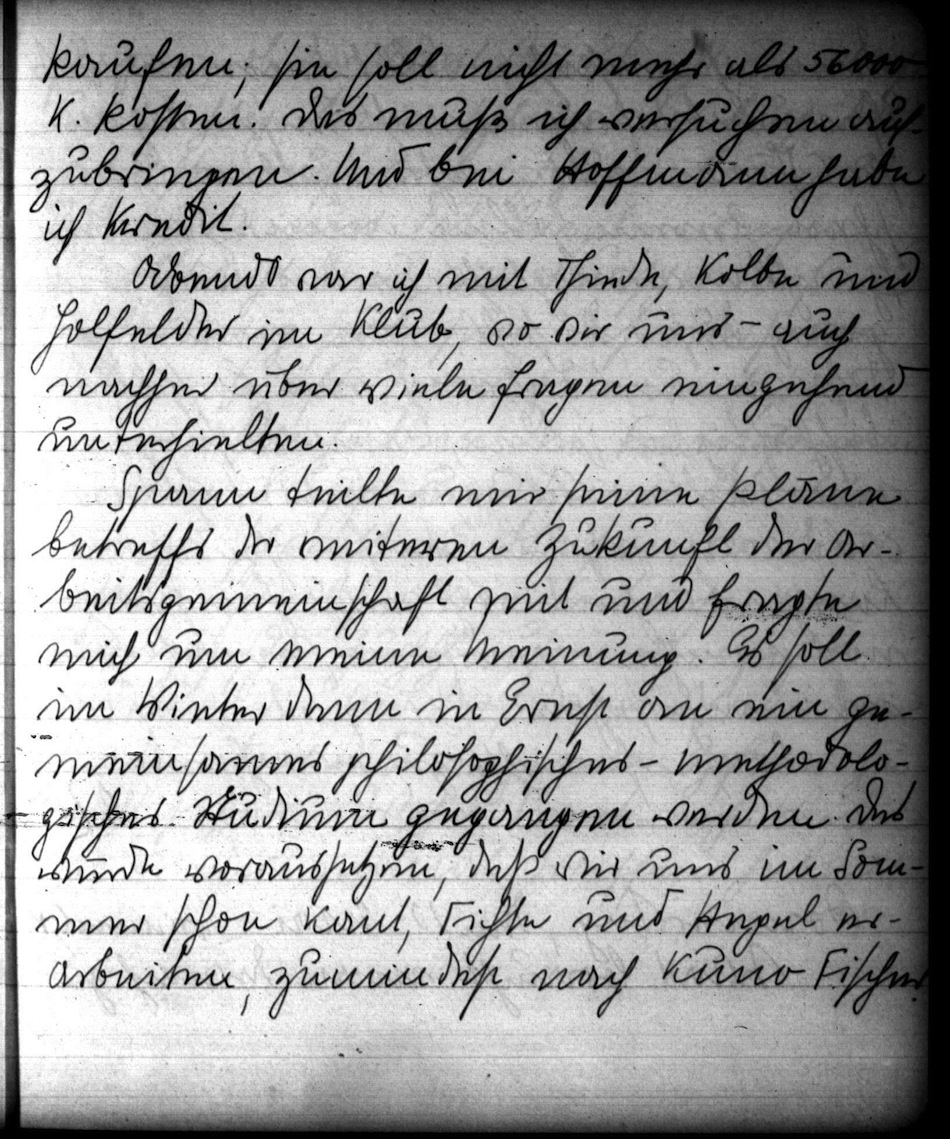 kaufen; sie soll nicht mehr als 56000
K. kosten. Das muß ich versuchen auf-
zubringen. Und bei Hoffmann habe
ich Kredit.
Abends war ich mit Thiede, Kolbe und
Holfelder im Klub, wo wir uns – auch
nachher über viele Fragen eingehend
unterhielten.
Spann teilte mir seine Pläne
betreffs der weiteren Zukunft der Ar-
beitsgemeinschaft mit und fragte
mich um meine Meinung. Es soll
im Winter dann in Ernst an ein ge-
meinsames philosophisches – methodolo-
gisches Studium gegangen werden. Das
würde voraussetzen, daß wir uns im Som-
mer schon Kant, Fichte und Hegel er-
arbeiten, zumindest nach Kuno Fischer.